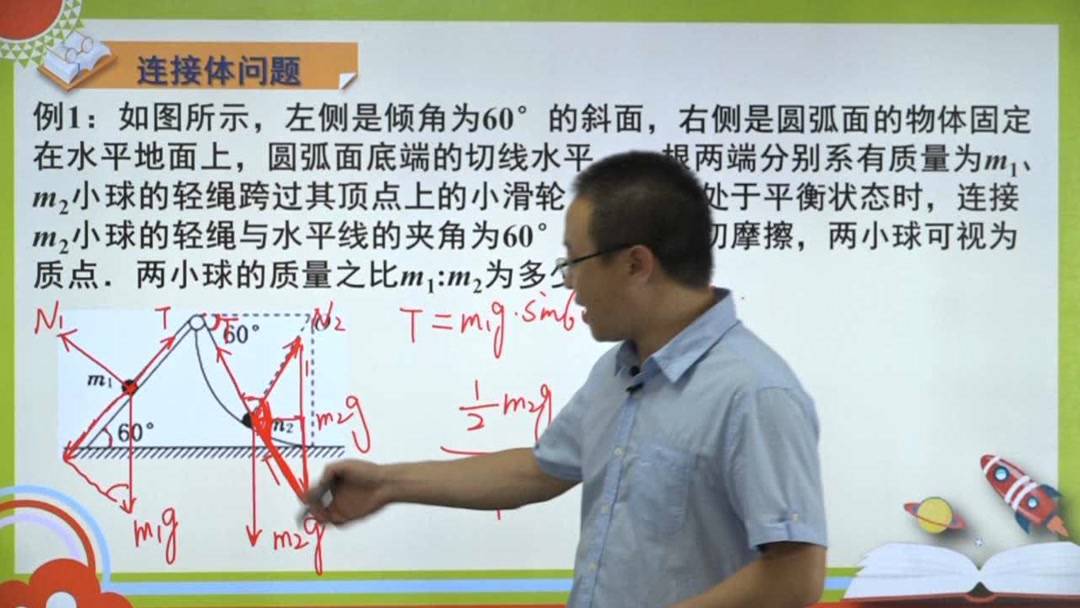 连接体问题
例1：如图所示，左侧是倾角为60°的斜面，右侧是圆弧面的物体固定
在水平地面上，圆弧面底端的切线水平 根两端分别系有质量为m₁、
m₂小球的轻绳跨过其顶点上的小滑轮 处于平衡状态时，连接
m₂小球的轻绳与水平线的夹角为60° 切摩擦，两小球可视为
质点．两小球的质量之比m₁:m₂为多少
N₁ T T N₂
60°
T=m₁g·sin6
m₁
½m₂g
60°
m₂
m₂g
m₁g
m₂g